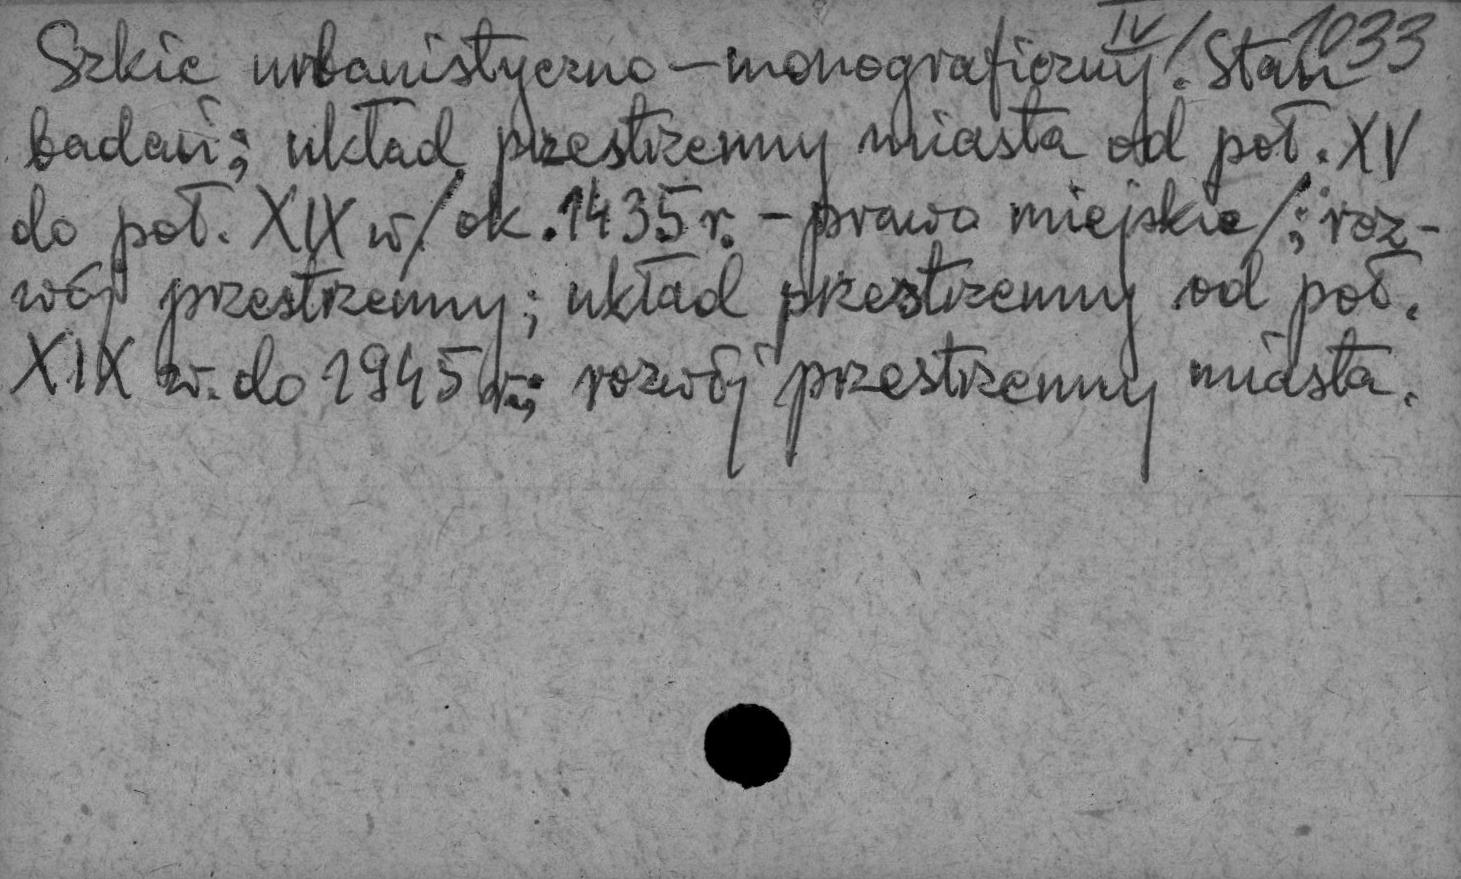 IV/1033
Szkic urbanistyczno-monograficzny. Stan
badań; układ przestrzenny miasta od poł. XV
do poł. XIX w./ok. 1435 r. - prawa miejskie/; roz-
wój przestrzenny; układ przestrzenny od poł.
XIX w. do 1945 r.; rozwój przestrzenny miasta.